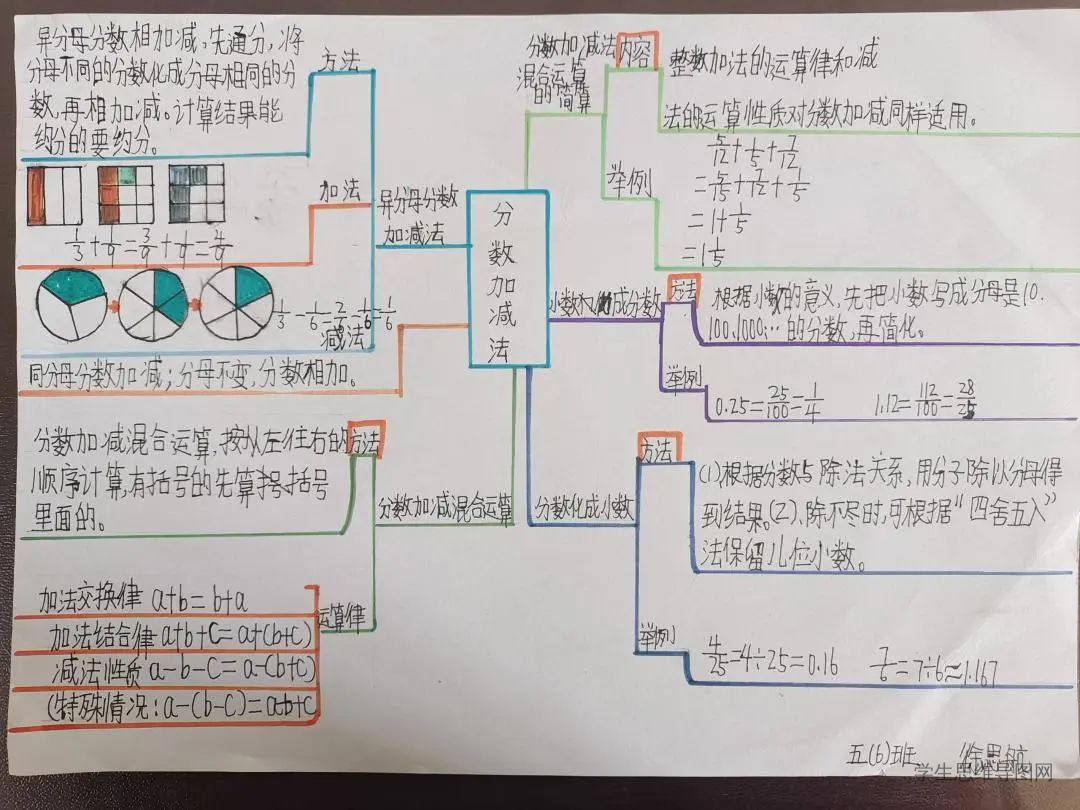 异分母分数相加减,先通分,将
分母不同的分数化成分母相同的分
数,再相加减。计算结果能
约分的要约分。
方法
加法
1/3+1/9=3/9+1/9=4/9
1/3-1/6=2/6-1/6=1/6
减法
异分母分数
加减法
同分母分数加减;分母不变,分数相加。
分数加减混合运算,按从左往右的
顺序计算,有括号的先算括号
里面的。
方法
分数加减混合运算
运算律
加法交换律 a+b=b+a
加法结合律 a+b+c=a+(b+c)
减法性质 a-b-c=a-(b+c)
(特殊情况:a-(b-c)=a-b+c
分数加减法
分数加减法
混合运算
的简算
内容
整数加法的运算律和减
法的运算性质对分数加减同样适用。
举例
5/12+1/5+7/12
=5/12+7/12+1/5
=1+1/5
=1 1/5
小数化成分数
方法
根据小数的意义,先把小数写成分母是10.
100.1000…的分数,再简化。
举例
0.25=25/100=1/4 1.12=112/100=28/25
分数化成小数
方法
(1).根据分数与除法关系,用分子除以分母得
到结果。(2)、除不尽时,可根据“四舍五入”
法保留几位小数。
举例
4/25=4÷25=0.16 7/6=7÷6≈1.167
五(6)班
学生思维导图网